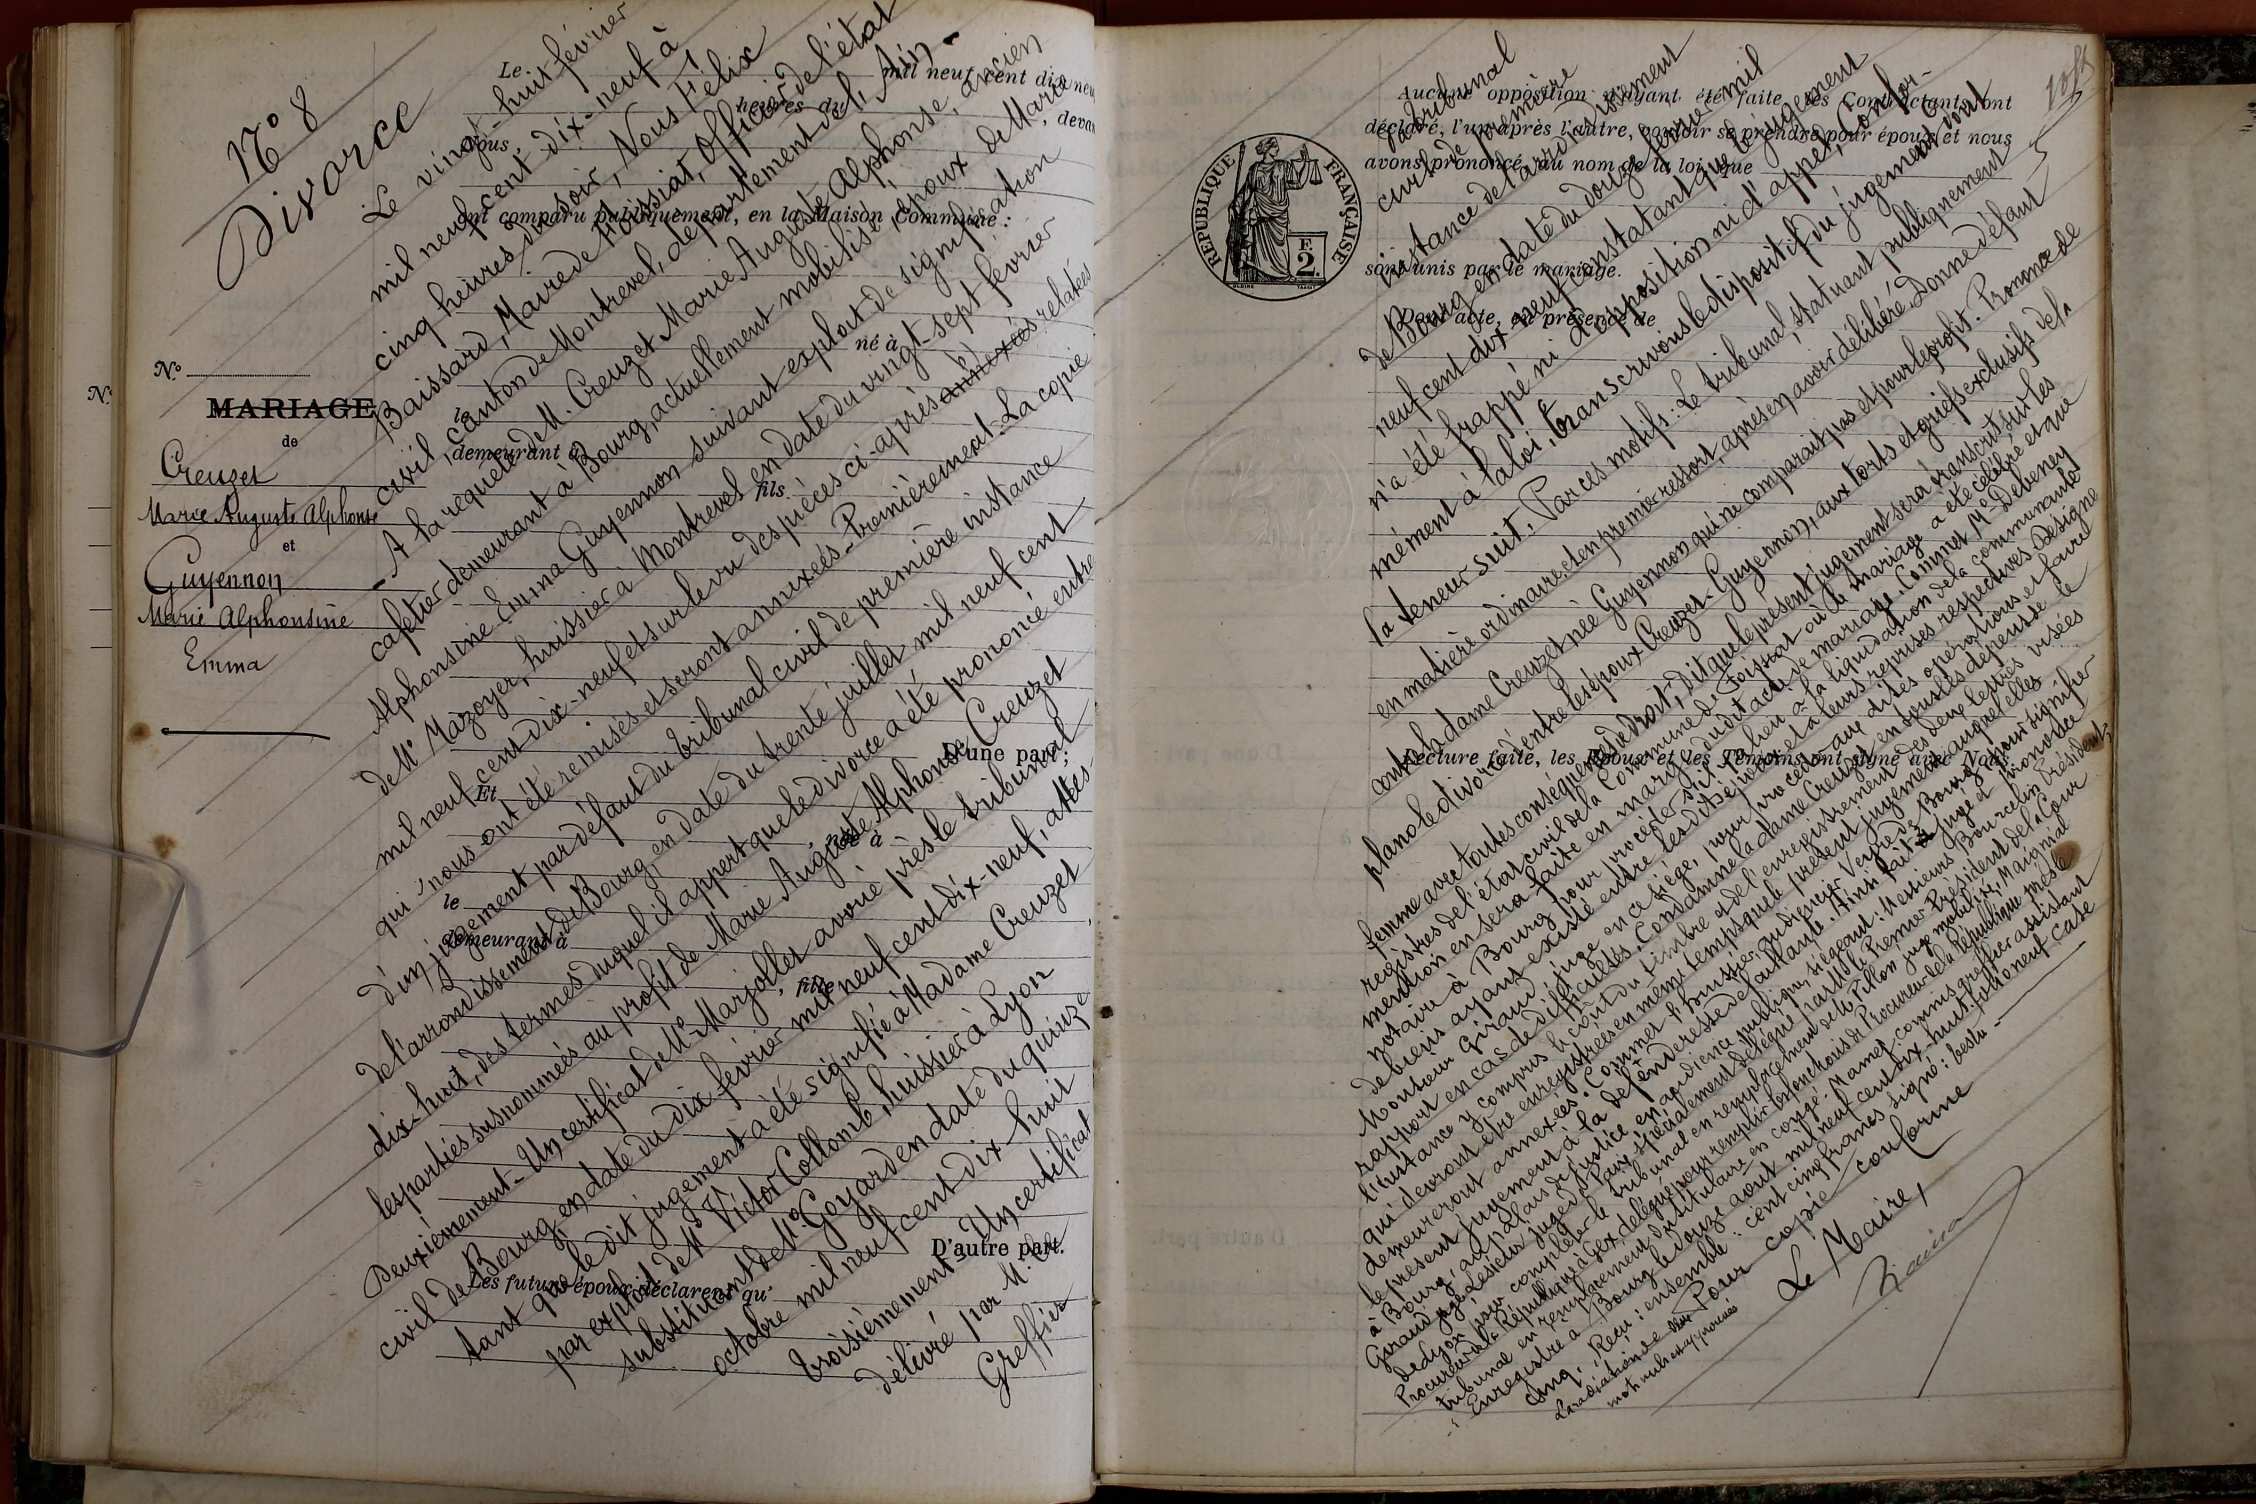 N° 8
Divorce
N°
MARIAGE
de
Creuzet
Marie Auguste Alphonse
et
Guyennon
Marie Alphonsine
Emma
Le mil neuf cent dix neuf
heures du
, devant
Nous
ont comparu publiquement, en la Maison Commune :
né à
le
demeurant à
fils
D'une part ;
Et
née à
le
demeurant à
, fille
D'autre part.
Les futurs époux déclarent qu'
Le vingt-huit février
mil neuf cent dix-neuf à
cinq heures du soir, Nous Félix
Baissard, Maire de Foissiat, Officier de l'état
civil, canton de Montrevel, département de l'Ain -
- A la requête de M. Creuzet Marie Auguste Alphonse, ancien
cafetier demeurant à Bourg, actuellement mobilisé, époux de Marie
Alphonsine Emma Guyennon, suivant exploit de signification
de Me Mazoyer, huissier à Montrevel en date du vingt-sept février
mil neuf cent dix-neuf et sur le vu des pièces ci-après annexées relatées
qui nous ont été remises et seront annexées - Premièrement - La copie
d'un jugement par défaut du tribunal civil de première instance
de l'arrondissement de Bourg en date du trente juillet mil neuf cent
dix-huit, des termes duquel il appert que le divorce a été prononcé entre
les parties susnommées au profit de Marie Auguste Alphonse Creuzet
Deuxièmement - Un certificat de Me Marjollet avoué près le tribunal
civil de Bourg en date du dix février mil neuf cent dix-neuf, attes-
tant que le dit jugement a été signifié à Madame Creuzet
par exploit de Me Victor Collomb, huissier à Lyon
substituant de Me Goyard en date du quinze
octobre mil neuf cent dix-huit
troisièmement - Un certificat
délivré par M. le
Greffier
Aucune opposition n'ayant été faite, les Contractants ont
déclaré, l'un après l'autre, vouloir se prendre pour époux et nous
avons prononcé, au nom de la loi, que
sont unis par le mariage.
Dont acte, en présence de
Lecture faite, les Epoux et les Témoins ont signé avec Nous.
REPUBLIQUE FRANÇAISE
F.
2.
du tribunal
civil de première
instance de l'arrondissement
de Bourg en date du douze février mil
neuf cent dix neuf constatant que le jugement
n'a été frappé ni d'opposition ni d'appel, Confor-
mément à la loi, transcrivons le dispositif du jugement dont
la teneur suit. Par ces motifs : Le tribunal, statuant publiquement
en matière ordinaire et en premier ressort, après en avoir délibéré Donne défaut
contre la dame Creuzet née Guyennon qui ne comparait pas et pour le profit. Prononce de
plano le divorce d'entre les époux Creuzet-Guyennon, aux torts et griefs exclusifs de la
femme avec toutes conséquences de droit ; dit que le présent jugement sera transcrit sur les
registres de l'état civil de la Commune de Foissiat où le mariage a été célébré et que
mention en sera faite en marge du dit acte de mariage. Commet Me Debeney
notaire à Bourg pour procéder s'il y a lieu à la liquidation de la communauté
de biens ayant existé entre les dits époux et à leurs reprises respectives. Désigne
Monsieur Giraud, juge en ce siège, pour procéder aux dites opérations et faire
rapport en cas de difficultés. Condamne la dame Creuzet en tous les dépens de
l'instance y compris le coût du timbre et de l'enregistrement des deux lettres visées
qui devront être enregistrées en même temps que le présent jugement auquel elles
demeureront annexées. Commet l'huissier audiencier Verne de Bourg pour signifier
le présent jugement à la défenderesse défaillante. Ainsi fait jugé et prononcé
à Bourg, au palais de justice en audience publique, siégeant : Messieurs Bourcelin Président,
Giraud juge juge de Paix spécialement délégué par le Premier Président de la Cour
de Lyon pour compléter le tribunal en remplacement de M. Pillon juge mobilisé, Maignial
Procureur de la République à Gex délégué pour remplir les fonctions de Procureur de la République près le
tribunal en remplacement du titulaire en congé. Mamet, commis greffier assistant
Enregistré à Bourg le onze août mil neuf cent dix-huit, folio neuf case
cinq. Reçu : ensemble : cent cinq francs signé : Pestu -
Pour copie conforme
Le Maire,
La radiation de
mot nuls est approuvée